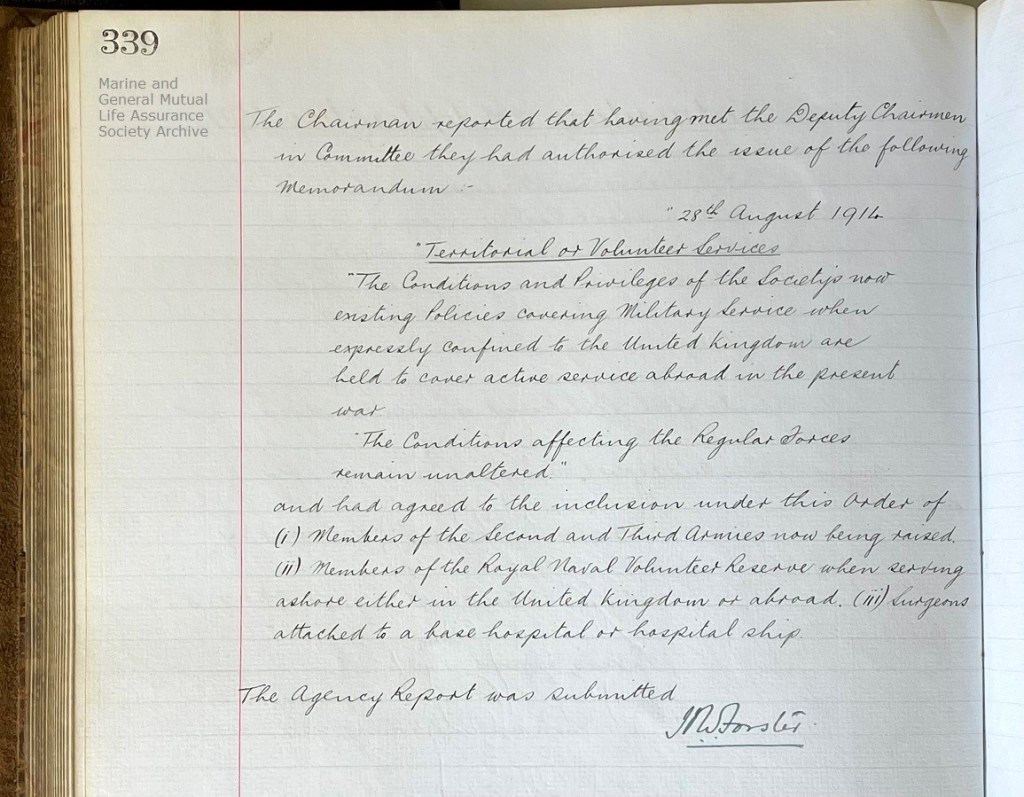 339
Marine and
General Mutual
Life Assurance
Society Archive
The Chairman reported that having met the Deputy Chairmen
in Committee they had authorised the issue of the following
Memorandum :-
"28th August 1914
"Territorial or Volunteer Services
"The Conditions and Privileges of the Society's now
existing Policies covering Military Service when
expressly confined to the United Kingdom are
held to cover active service abroad in the present
war
"The Conditions affecting the Regular Forces
remain unaltered."
and had agreed to the inclusion under this Order of
(i) Members of the Second and Third Armies now being raised.
(ii) Members of the Royal Naval Volunteer Reserve when serving
ashore either in the United Kingdom or abroad. (iii) Surgeons
attached to a base hospital or hospital ship.
The Agency Report was submitted
Forster